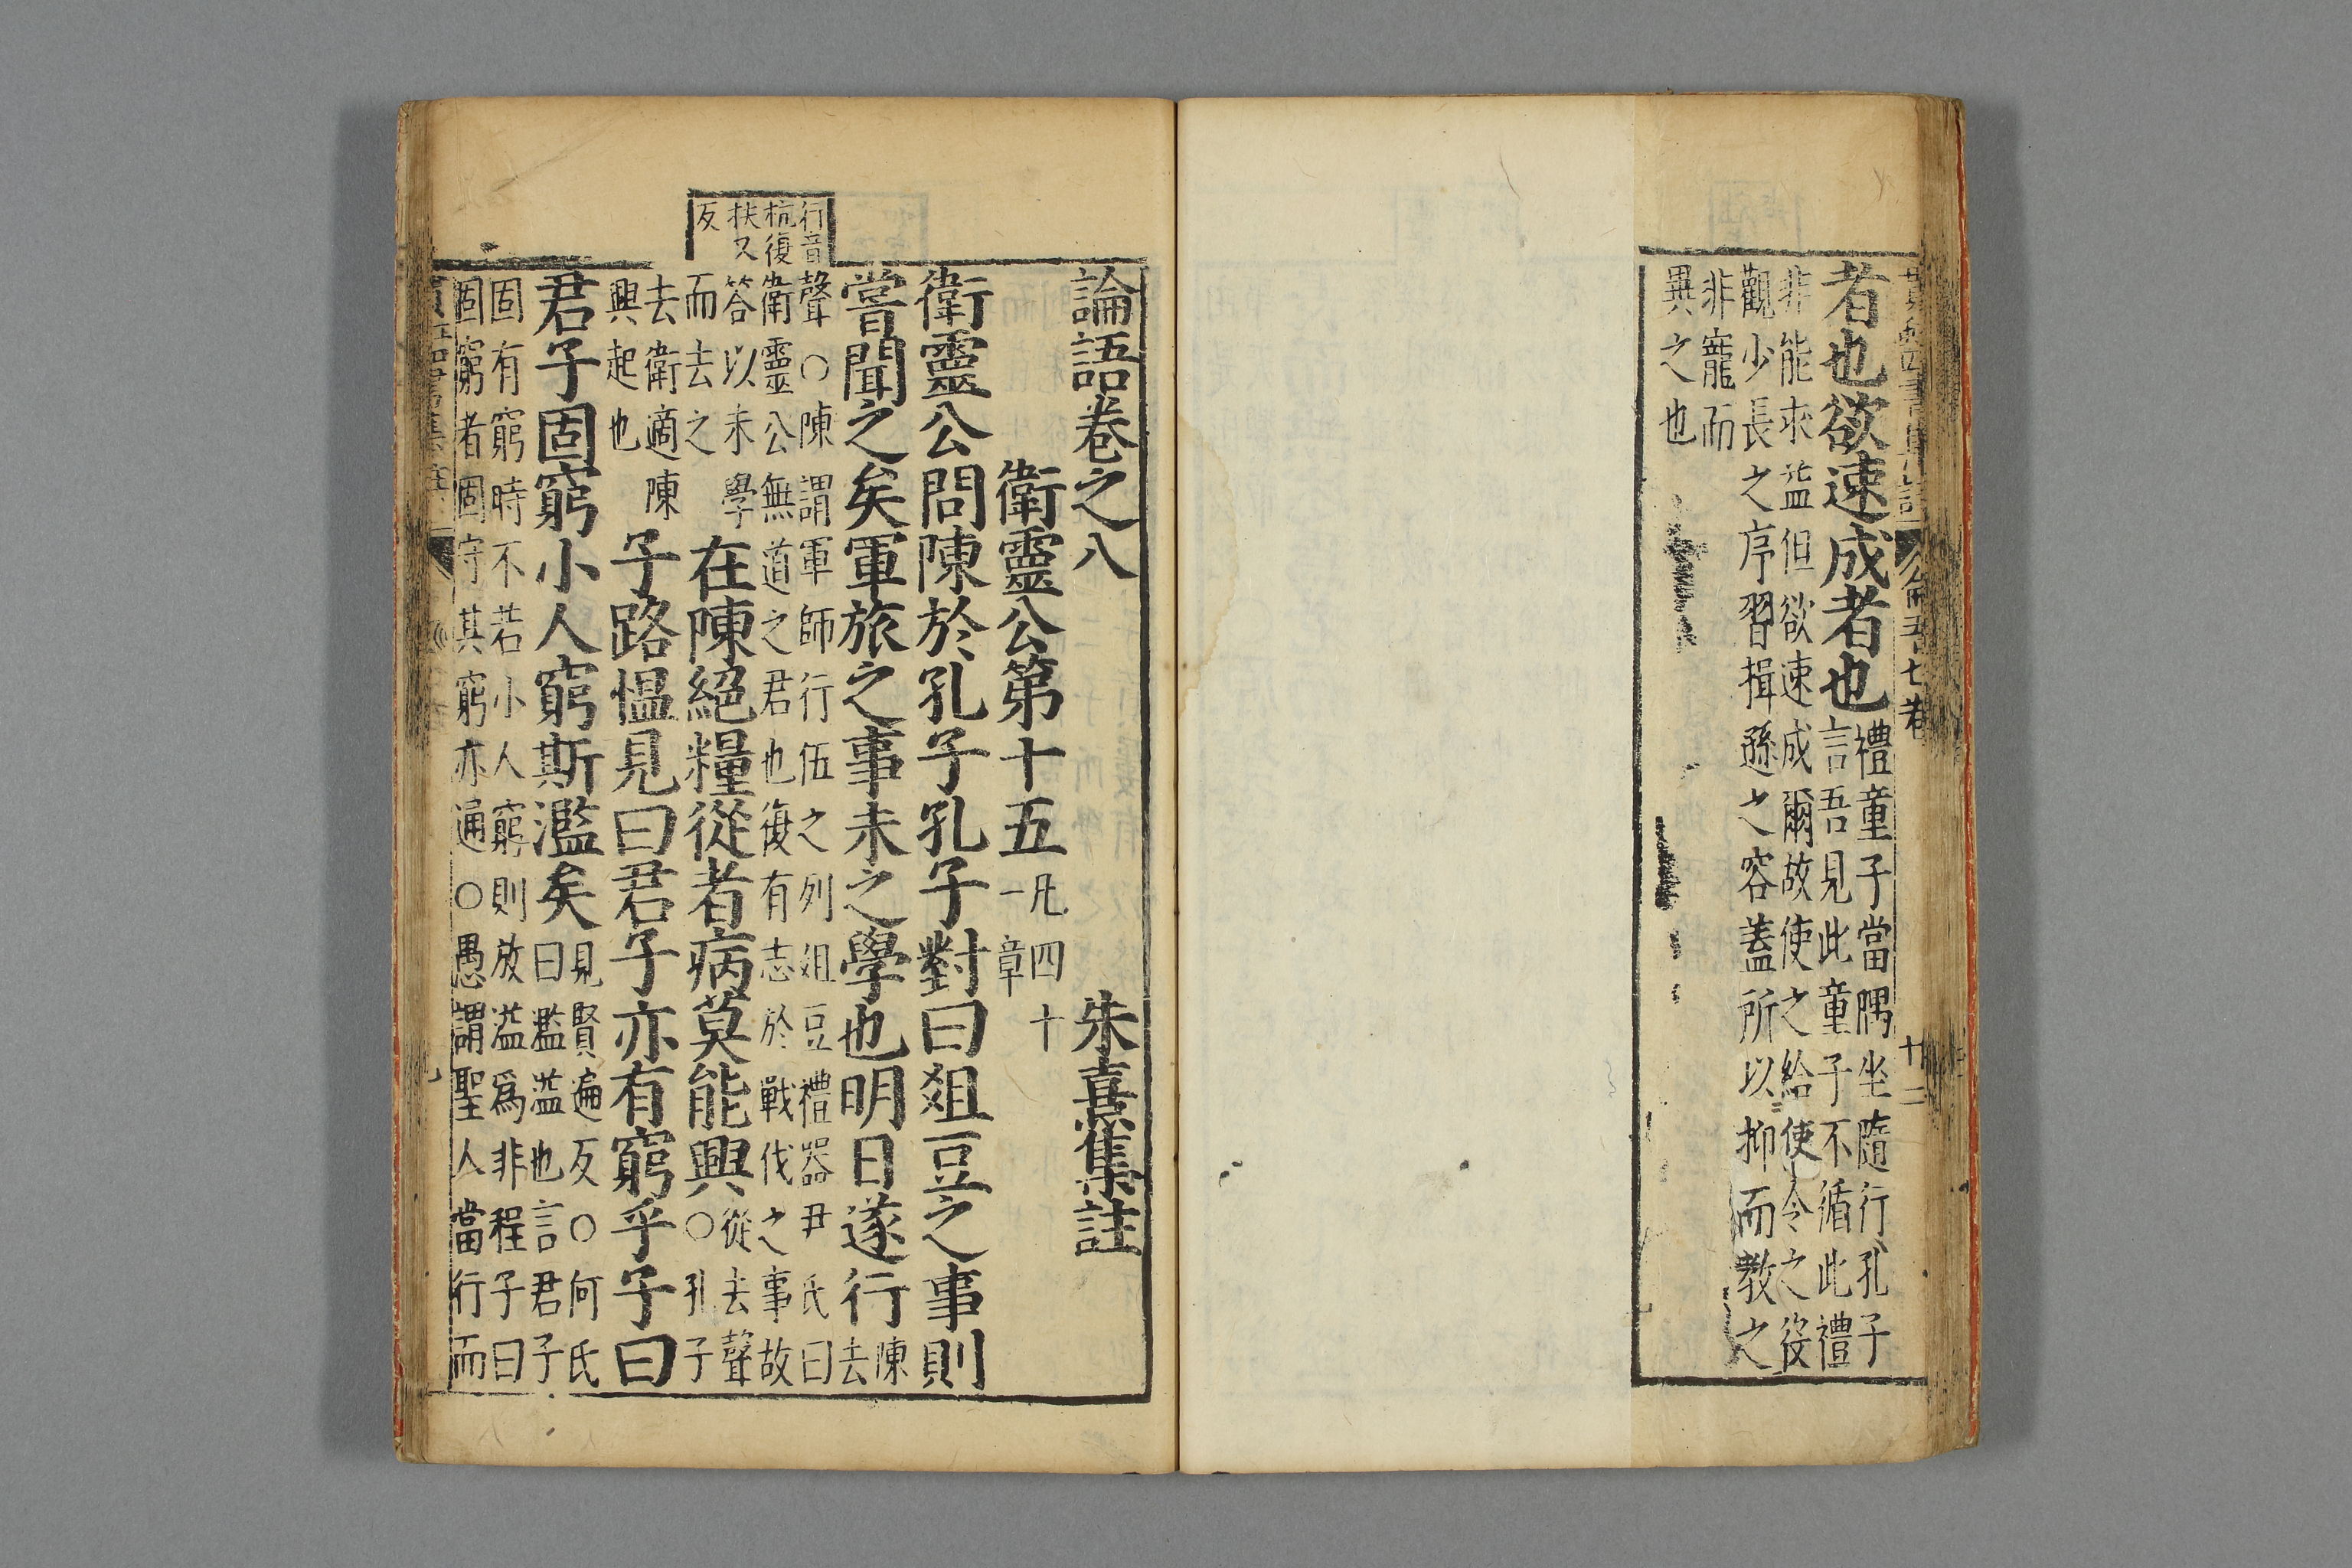 者也欲速成者也禮童子當隅坐隨行孔子
言吾見此童子不循此禮
非能求益但欲速成爾故使之給使令之役
觀少長之序習揖遜之容蓋所以抑而教之
非寵而
異之也
論語卷之八
朱熹集註
衛靈公第十五凡四十
一章
衛靈公問陳於孔子孔子對曰俎豆之事則
嘗聞之矣軍旅之事未之學也明日遂行陳
去
行音
杭復
扶又
反
聲○陳謂軍師行伍之列俎豆禮器尹氏曰
衛靈公無道之君也復有志於戰伐之事故
答以未學
而去之
在陳絕糧從者病莫能興從去聲
○孔子
去衛適陳
興起也
子路慍見曰君子亦有窮乎子曰
君子固窮小人窮斯濫矣見賢遍反○何氏
曰濫溢也言君子
固有窮時不若小人窮則放溢爲非程子曰
固窮者固守其窮亦通○愚謂聖人當行而